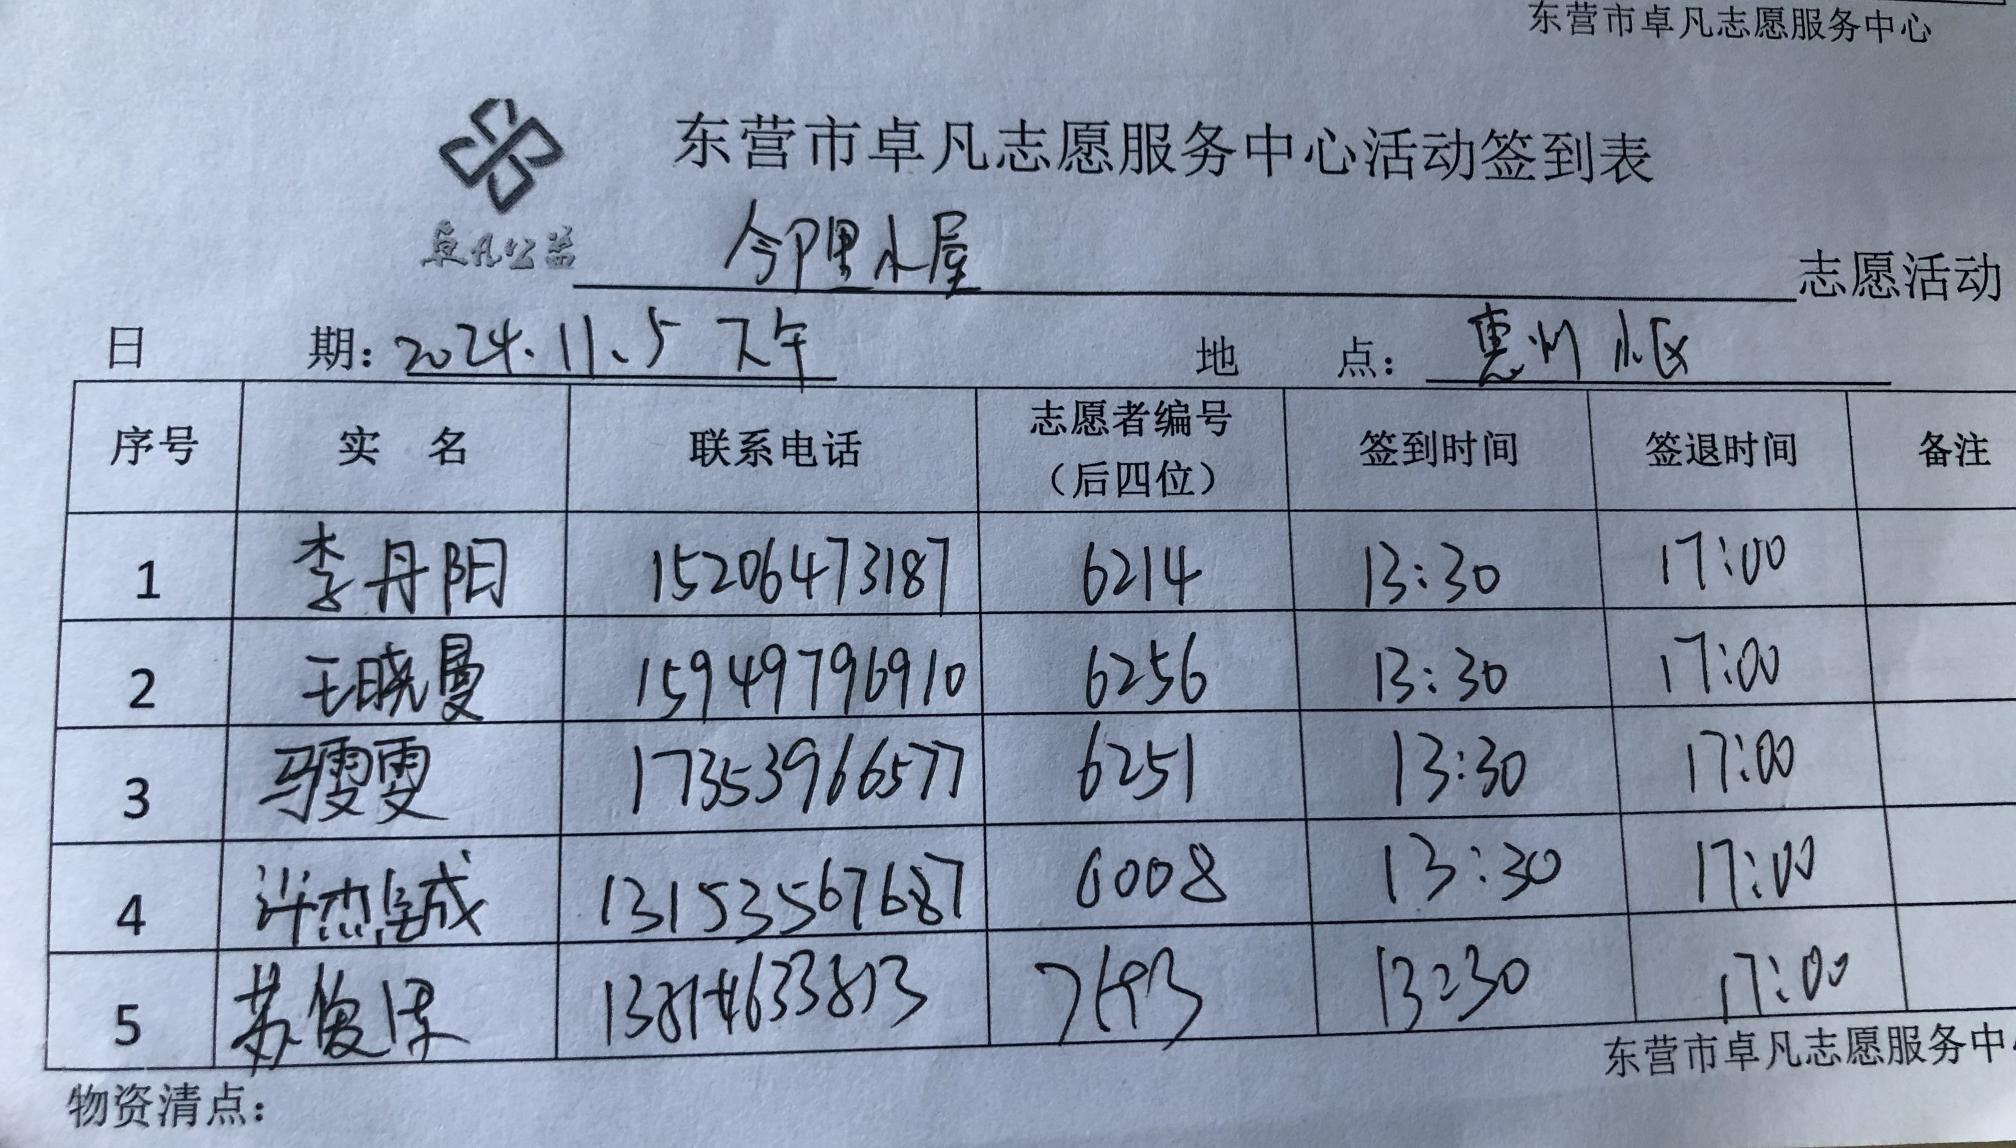 东营市卓凡志愿服务中心
东营市卓凡志愿服务中心活动签到表
卓凡公益
邻里小屋 志愿活动
日 期: 2024.11.5 下午 地 点: 惠州小区
序号 实 名 联系电话 志愿者编号（后四位） 签到时间 签退时间 备注
1 李丹阳 15206473187 6214 13:30 17:00
2 王晓曼 15949796910 6256 13:30 17:00
3 马雯雯 17353966577 6251 13:30 17:00
4 许杰诚 13153567687 6008 13:30 17:00
5 苏俊 13814633813 7693 13:30 17:00
东营市卓凡志愿服务中
物资清点: